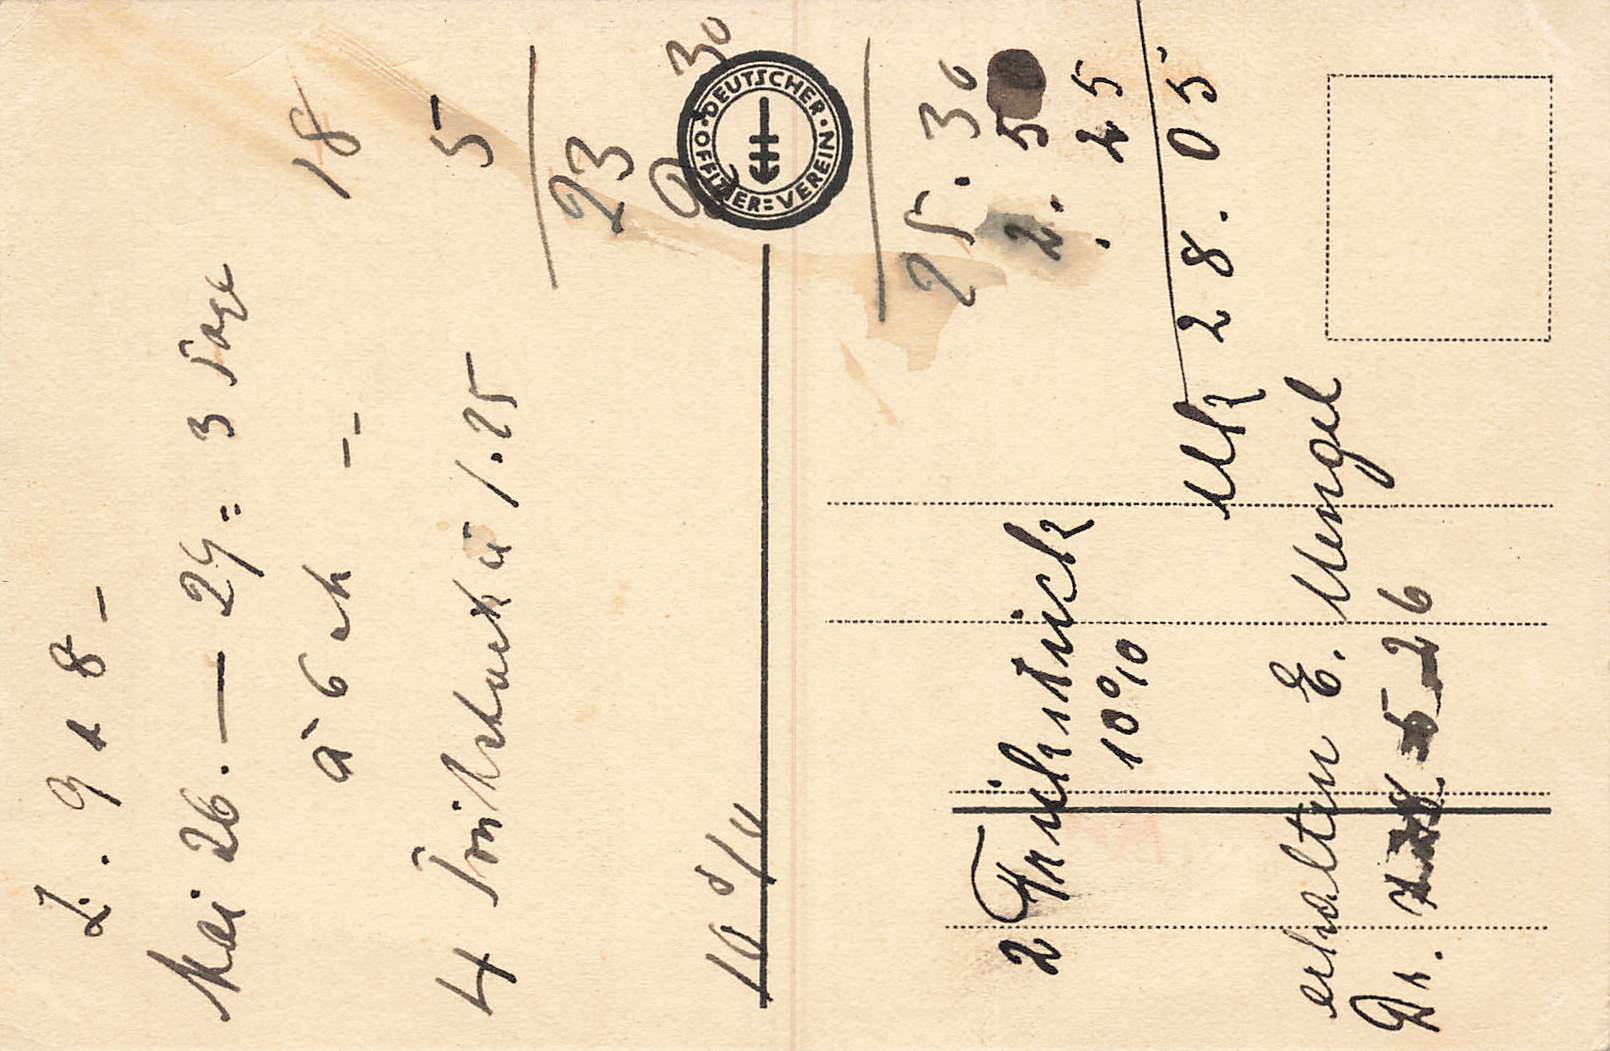 Z. 9 + 8 –
Mai 26. — 29 = 3 Tage
à 6 M – – 18
4 Frühstück à 1.25 5
23
10 % 2 30
25.30
2 Frühstück 2.50
10% .25
Mk 28.05
erhalten E. Mengel
Dr. 5 26
DEUTSCHER OFFIZIER=VEREIN